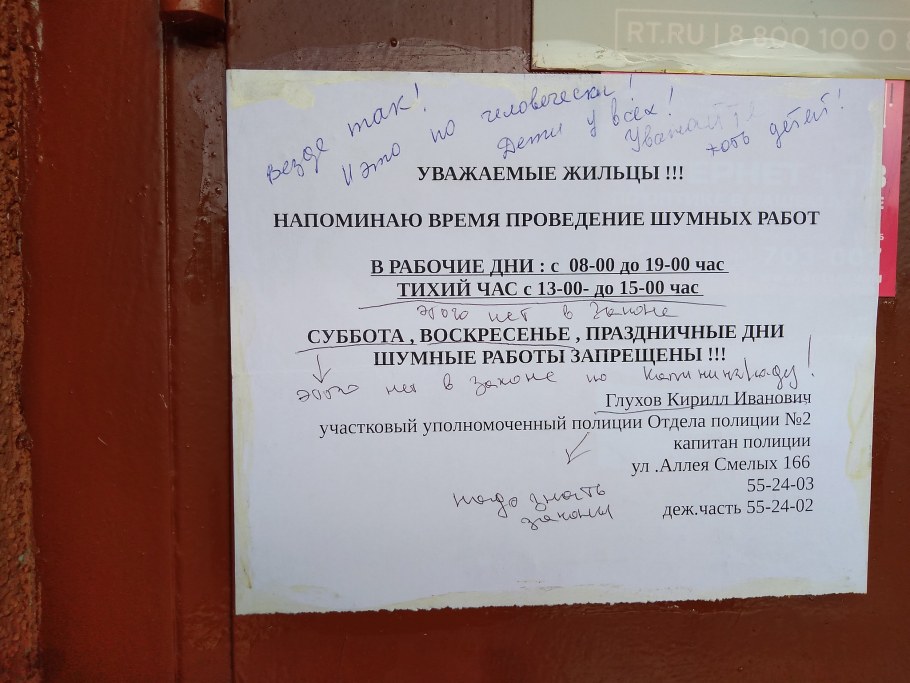 RT.RU | 8 800 100 0 8
везде так!
И это по человечески!
Дети у всех!
Уважайте
хоть детей!
УВАЖАЕМЫЕ ЖИЛЬЦЫ !!!
НАПОМИНАЮ ВРЕМЯ ПРОВЕДЕНИЕ ШУМНЫХ РАБОТ
В РАБОЧИЕ ДНИ : с 08-00 до 19-00 час
ТИХИЙ ЧАС с 13-00- до 15-00 час
этого нет в законе
СУББОТА , ВОСКРЕСЕНЬЕ , ПРАЗДНИЧНЫЕ ДНИ
ШУМНЫЕ РАБОТЫ ЗАПРЕЩЕНЫ !!!
этого нет в законе по Калининграду!
Глухов Кирилл Иванович
участковый уполномоченный полиции Отдела полиции №2
капитан полиции
ул .Аллея Смелых 166
55-24-03
надо знать
законы
деж.часть 55-24-02